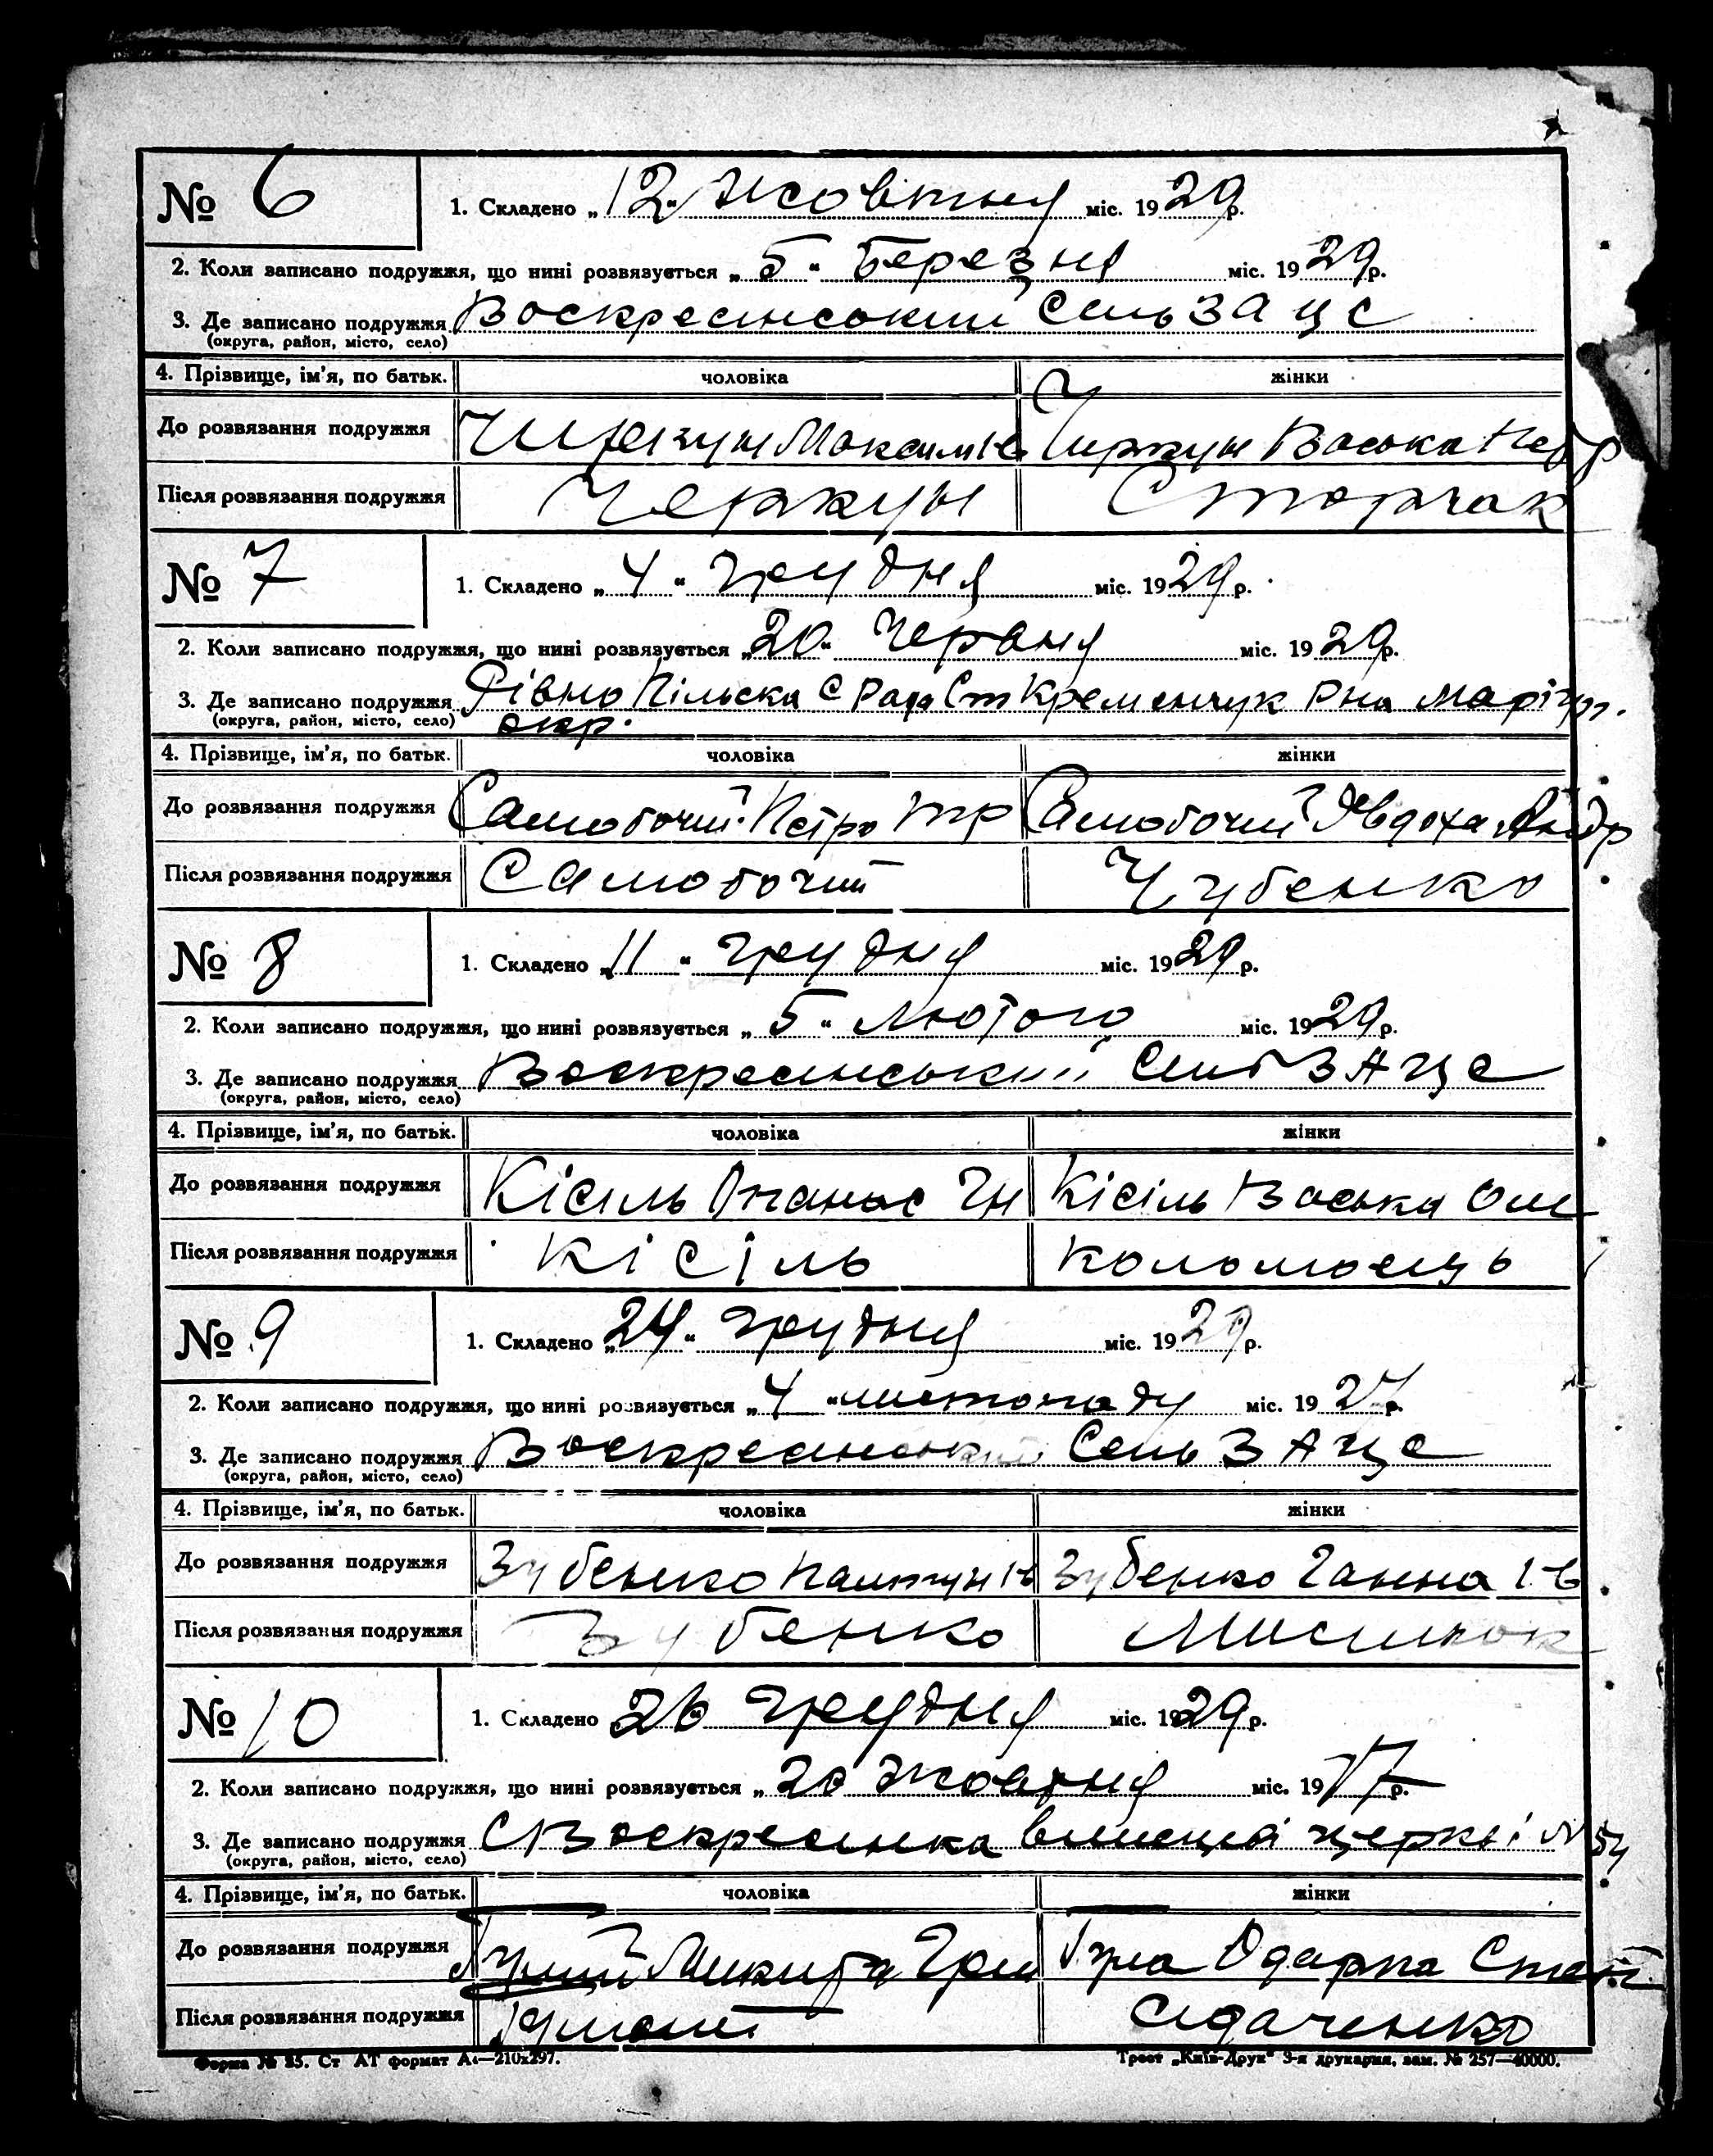 № 6
1. Складено „12“ жовтня міс. 1929р.
2. Коли записано подружжя, що нині розвязується „5“ Березня міс. 1929р.
3. Де записано подружжя Воскресинський Сель ЗАЦС
(округа, район, місто, село)
4. Прізвище, ім'я, по батьк. чоловіка жінки
До розвязання подружжя Чиркун Максим Ів Чиркун Васька
Після розвязання подружжя Черкун Сторчак
№ 7
1. Складено „4“ грудня міс. 1929р.
2. Коли записано подружжя, що нині розвязується „20“ Червня міс. 1929р.
3. Де записано подружжя Рівнопільска С Рада Ст Кременчук Рна Маріуп.
(округа, район, місто, село) окр.
4. Прізвище, ім'я, по батьк. чоловіка жінки
До розвязання подружжя Самобочий Петро Самобочий Явдоха Андр
Після розвязання подружжя Самобочий Чубенко
№ 8
1. Складено „11“ грудня міс. 1929р.
2. Коли записано подружжя, що нині розвязується „5“ Лютого міс. 1929р.
3. Де записано подружжя Воскресинський Сель ЗАЦС
(округа, район, місто, село)
4. Прізвище, ім'я, по батьк. чоловіка жінки
До розвязання подружжя Кісіль Панас Кісіль Васька Ом
Після розвязання подружжя Кісіль Коломоець
№ 9
1. Складено „24“ грудня міс. 1929р.
2. Коли записано подружжя, що нині розвязується „4“ листопаду міс. 1927р.
3. Де записано подружжя Воскресинський Сель ЗАЦС
(округа, район, місто, село)
4. Прізвище, ім'я, по батьк. чоловіка жінки
До розвязання подружжя Зубенко Ів Зубенко Ганна Ів
Після розвязання подружжя Зубенко
№ 10
1. Складено 26 грудня міс. 1929р.
2. Коли записано подружжя, що нині розвязується „20 жовтня міс. 1917р.
3. Де записано подружжя С Воскресинка церкві № 54
(округа, район, місто, село)
4. Прізвище, ім'я, по батьк. чоловіка жінки
До розвязання подружжя Микита Гри Одарка Степ
Після розвязання подружжя Сидаченко
Форма № 85. Ст АТ формат А4—210х297. Трест „Київ-Друк“ 3-я друкарня, зам. № 257—40000.